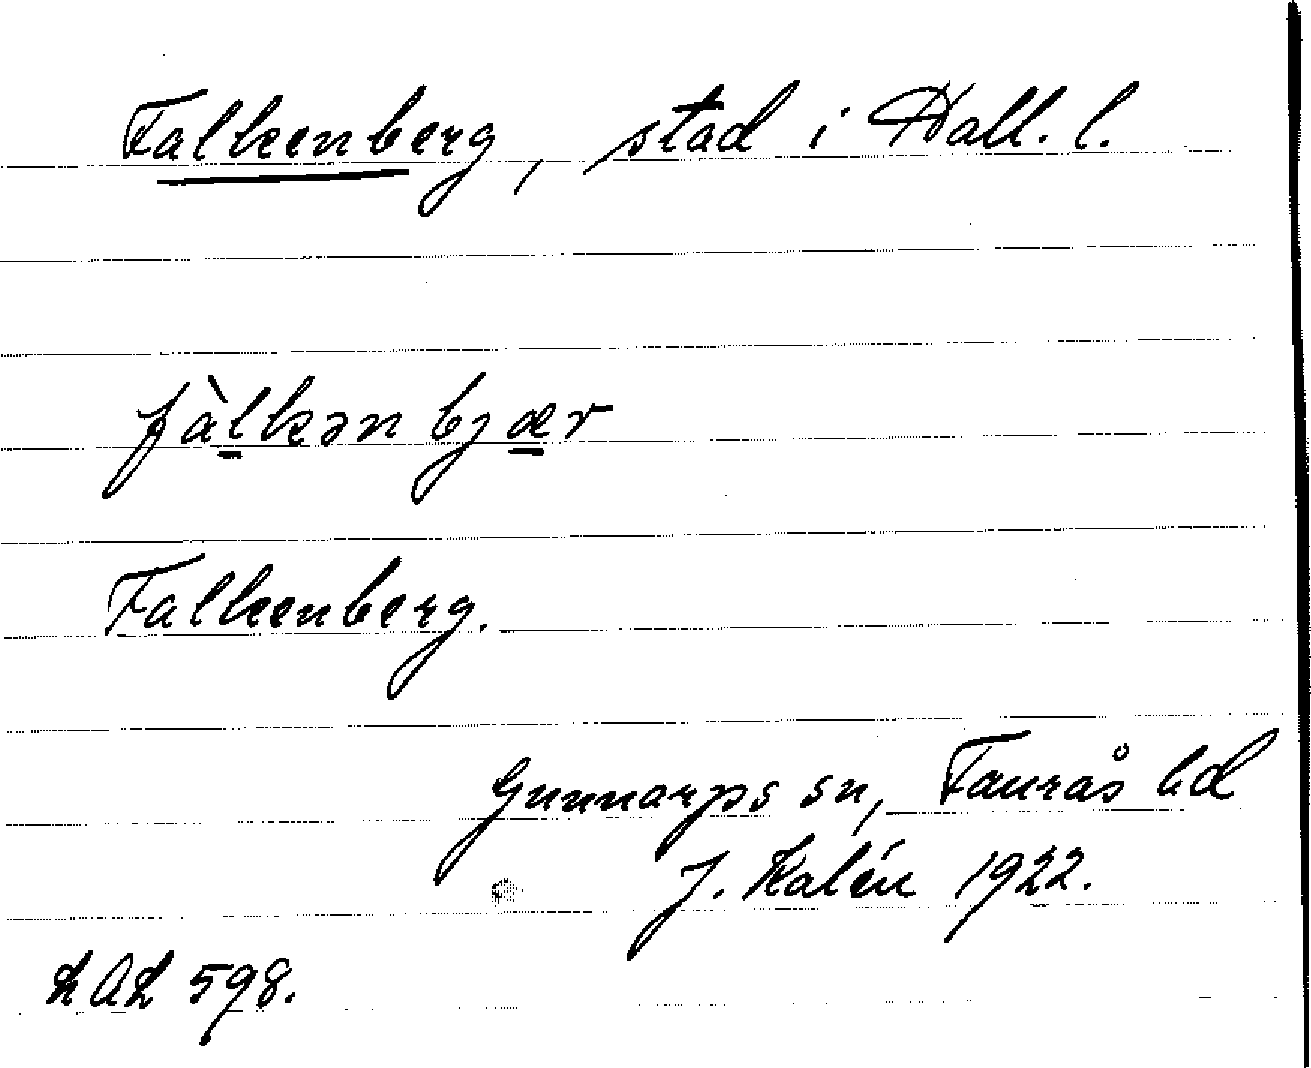 Falkenberg, stad i Hall. l.
fàlkən bjær
Falkenberg.
Gunnarps sn, Faurås hd
J. Kalén 1922.
LAL 598.